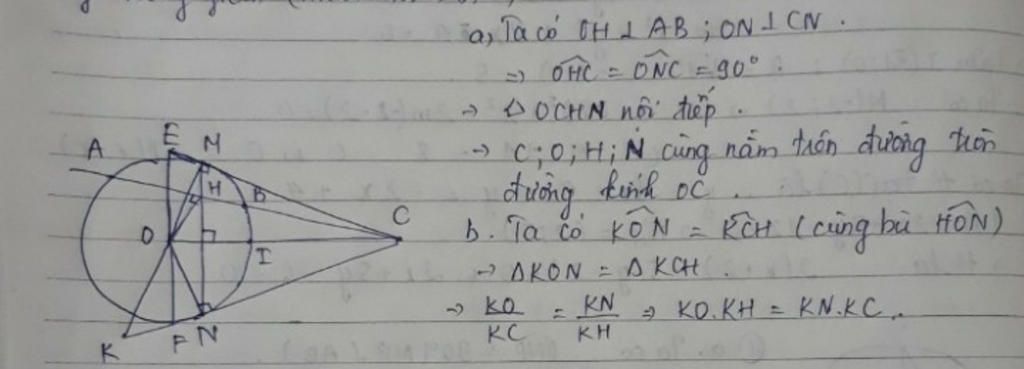 a, Ta có OH ⊥ AB ; ON ⊥ CN .
⇒ OHC = ONC = 90° .
→ △ OCHN nội tiếp .
→ C ; O ; H ; N cùng nằm trên đường tròn
đường kính OC .
b . Ta có KON = KCH ( cùng bù HON )
→ ΔKON = Δ KCH .
→ KO/KC = KN/KH ⇒ KO.KH = KN.KC .
E
M
A
H
B
C
O
I
K
F
N